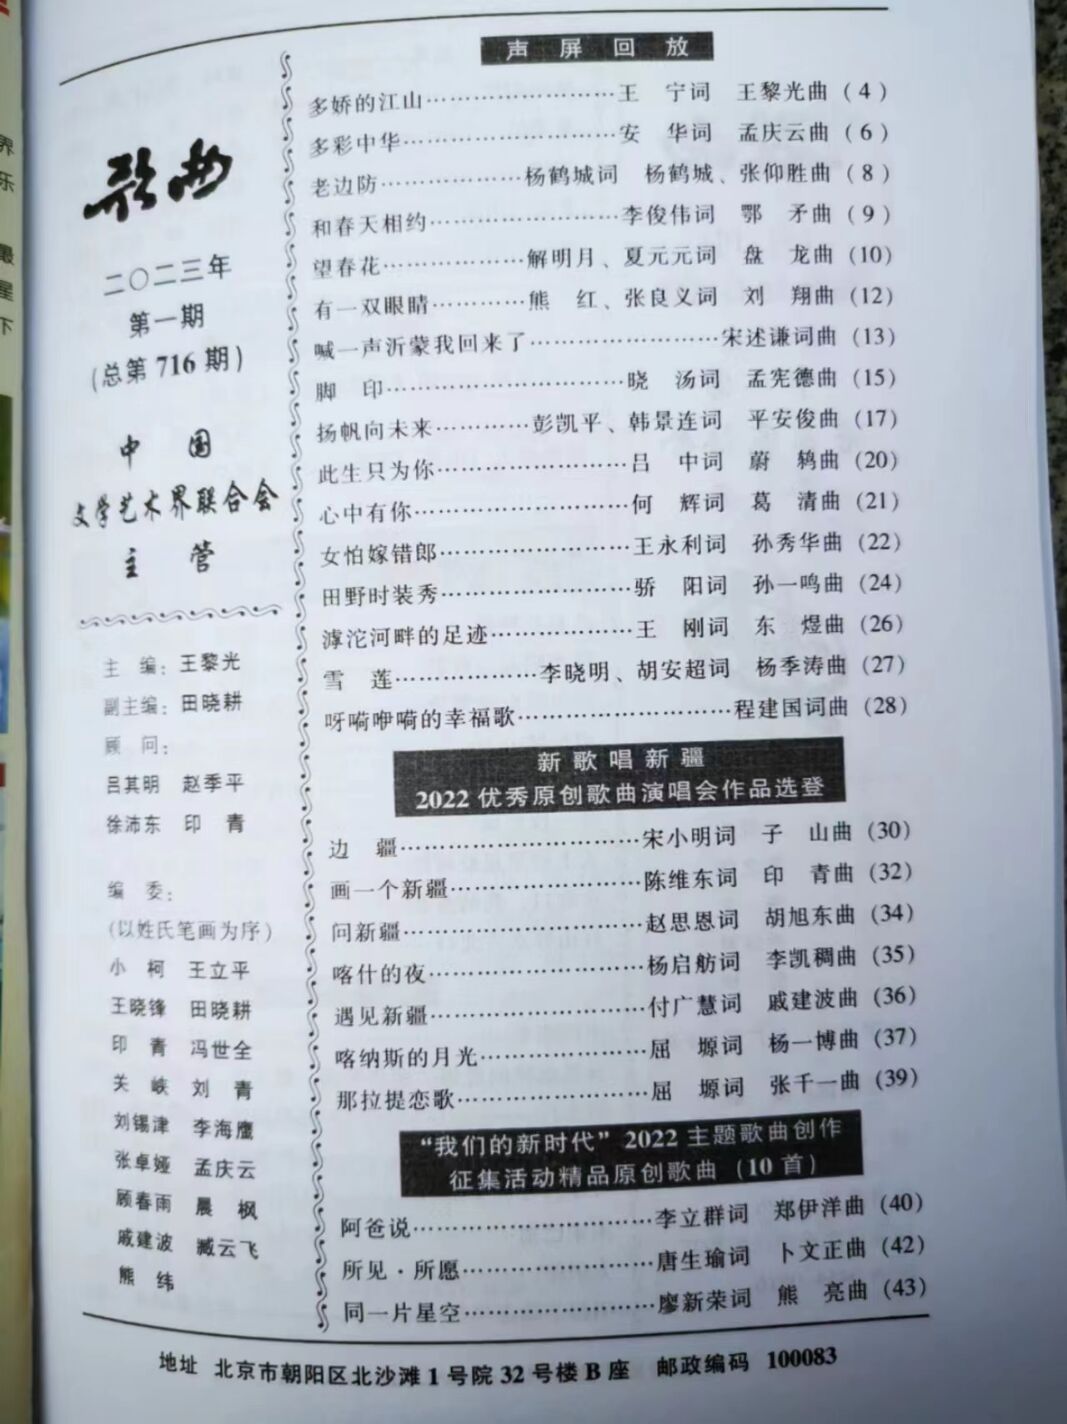 歌曲
二〇二三年
第一期
(总第 716 期)
中 国
文学艺术界联合会
主 管
主 编：王黎光
副主编：田晓耕
顾 问：
吕其明 赵季平
徐沛东 印 青
编 委：
(以姓氏笔画为序)
小 柯 王立平
王晓锋 田晓耕
印 青 冯世全
关 峡 刘 青
刘锡津 李海鹰
张卓娅 孟庆云
顾春雨 晨 枫
戚建波 臧云飞
熊 纬
声 屏 回 放
多娇的江山……………………王 宁词 王黎光曲 (4)
多彩中华………………………安 华词 孟庆云曲 (6)
老边防………………杨鹤城词 杨鹤城、张仰胜曲 (8)
和春天相约……………………李俊伟词 鄂 矛曲 (9)
望春花………………解明月、夏元元词 盘 龙曲 (10)
有一双眼睛…………熊 红、张良义词 刘 翔曲 (12)
喊一声沂蒙我回来了……………………宋述谦词曲 (13)
脚 印…………………………晓 汤词 孟宪德曲 (15)
扬帆向未来…………彭凯平、韩景连词 平安俊曲 (17)
此生只为你……………………吕 中词 蔚 鸫曲 (20)
心中有你………………………何 辉词 葛 清曲 (21)
女怕嫁错郎……………………王永利词 孙秀华曲 (22)
田野时装秀……………………骄 阳词 孙一鸣曲 (24)
滹沱河畔的足迹………………王 刚词 东 煜曲 (26)
雪 莲………………李晓明、胡安超词 杨季涛曲 (27)
呀嗬咿嗬的幸福歌………………………程建国词曲 (28)
新 歌 唱 新 疆
2022 优秀原创歌曲演唱会作品选登
边 疆…………………………宋小明词 子 山曲 (30)
画一个新疆……………………陈维东词 印 青曲 (32)
问新疆…………………………赵思恩词 胡旭东曲 (34)
喀什的夜………………………杨启舫词 李凯稠曲 (35)
遇见新疆………………………付广慧词 戚建波曲 (36)
喀纳斯的月光…………………屈 塬词 杨一博曲 (37)
那拉提恋歌……………………屈 塬词 张千一曲 (39)
“我们的新时代”2022 主题歌曲创作
征集活动精品原创歌曲 (10 首)
阿爸说…………………………李立群词 郑伊洋曲 (40)
所见·所愿……………………唐生瑜词 卜文正曲 (42)
同一片星空……………………廖新荣词 熊 亮曲 (43)
地址 北京市朝阳区北沙滩 1 号院 32 号楼 B 座 邮政编码 100083